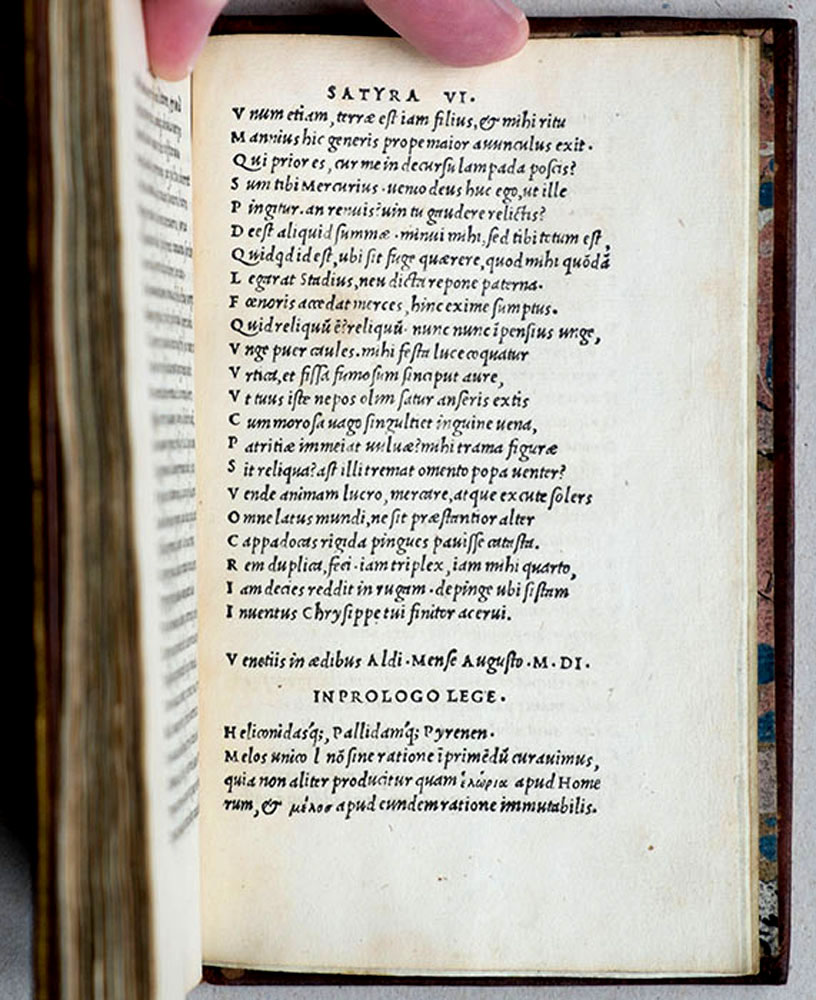 SATYRA VI.
V num etiam, terræ est iam filius, & mihi ritu
M annius hic generis prope maior auunculus exit.
Qui prior es, cur me in decursu lampada poscis?
S um tibi Mercurius. uenio deus huc ego, ut ille
P ingitur. an renuis? uin tu gaudere relictis?
D eest aliquid summæ. minui mihi, sed tibi totum est,
Quidqd id est, ubi sit fuge quærere, quod mihi quōdā
L egarat Stadius, neu dicta repone paterna.
F œnoris accedat merces, hinc exime sumptus.
Quid reliquū ē? reliquū. nunc nunc īpensius unge,
V nge puer caules. mihi festa luce coquatur
V rtica, et fissa fumosum sinciput aure,
V t tuus iste nepos olim satur anseris extis
C um morosa uago singultiet inguine uena,
P atritiæ immeiat uuluæ? mihi trama figuræ
S it reliqua? ast illi tremat omento popa uenter?
V ende animam lucro, mercare, atque excute solers
O mne latus mundi, ne sit præstantior alter
C appadocas rigida pingues pauisse catasta.
R em duplica, feci. iam triplex, iam mihi quarto,
I am decies reddit in rugam. depinge ubi sistam
I nuentus Chrysippe tui finitor acerui.
V enetiis in ædibus Aldi. Mense Augusto. M. DI.
IN PROLOGO LEGE.
H eliconidasq;, Pallidamq; Pyrenen.
Melos unico l nō sine ratione īprimēdū curauimus,
quia non aliter producitur quam ἑλώρια apud Home
rum, & μέλοσ apud eundem ratione immutabilis.